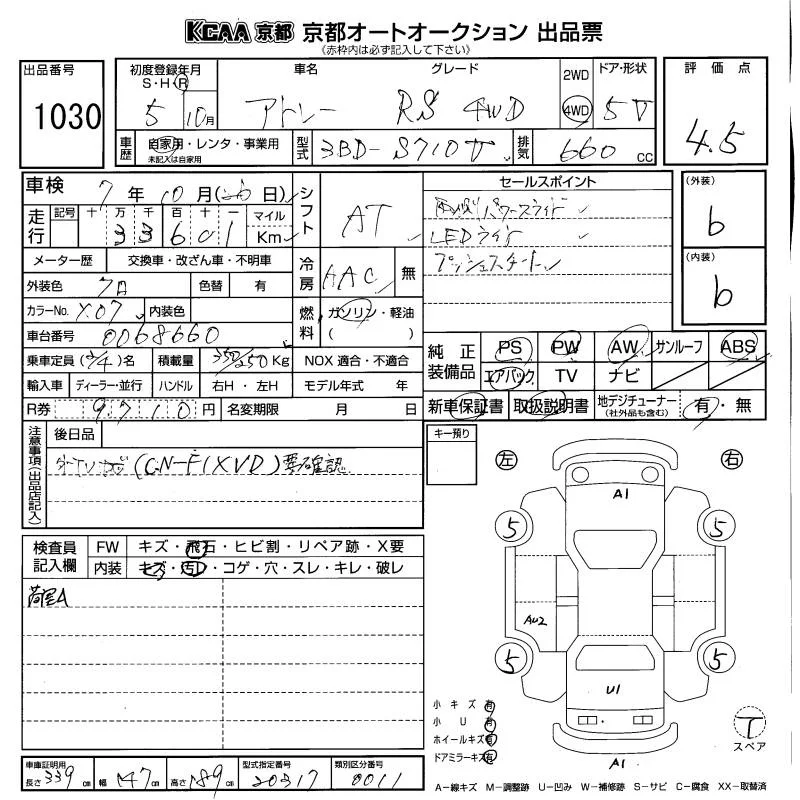 KCAA 京都 京都オートオークション 出品票
(赤枠内は必ず記入して下さい)
出品番号
1030
初度登録年月
S・H・R
5 10月
車名
アトレー
グレード
RS 4WD
2WD
4WD
ドア・形状
5 V
評価点
4.5
車歴
自家用・レンタ・事業用
未記入は自家用
型式
3BD-S710V
排気
660 cc
車検
7年10月(26日)
シフト
AT
セールスポイント
両側パワースライド
LEDライト
プッシュスタート
(外装)
b
(内装)
b
走行
記号 十 万 千 百 十 一
3 3 6 0 1
マイル
Km
メーター歴
交換車・改ざん車・不明車
冷房
AAC
無
外装色
クロ
色替
有
カラーNo.
X07
内装色
燃料
ガソリン・軽油
( )
車台番号
0068660
純正装備品
PS
PW
AW
サンルーフ
ABS
エアバック
TV
ナビ
乗車定員
(2/4)名
積載量
350/250 Kg
NOX 適合・不適合
輸入車
ディーラー・並行
ハンドル
右H・左H
モデル年式 年
新車保証書
取扱説明書
地デジチューナー
(社外品も含む)
有・無
R券
9710円
名変期限
月 日
注意事項(出品店記入)
後日品
(CN-F1XVD)要確認
キー預り
左
右
A1
5
5
AU2
5
5
U1
A1
検査員記入欄
FW
キズ・飛石・ヒビ割・リペア跡・X要
内装
キズ・汚れ・コゲ・穴・スレ・キレ・破レ
荷室A
小キズ 有
小U 有
ホイールキズ 有
ドアミラーキズ 有
T
スペア
車庫証明用
長さ 339 cm
幅 147 cm
高さ 189 cm
型式指定番号
20317
類別区分番号
0011
A-線キズ M-調整跡 U-凹み W-補修跡 S-サビ C-腐食 XX-取替済